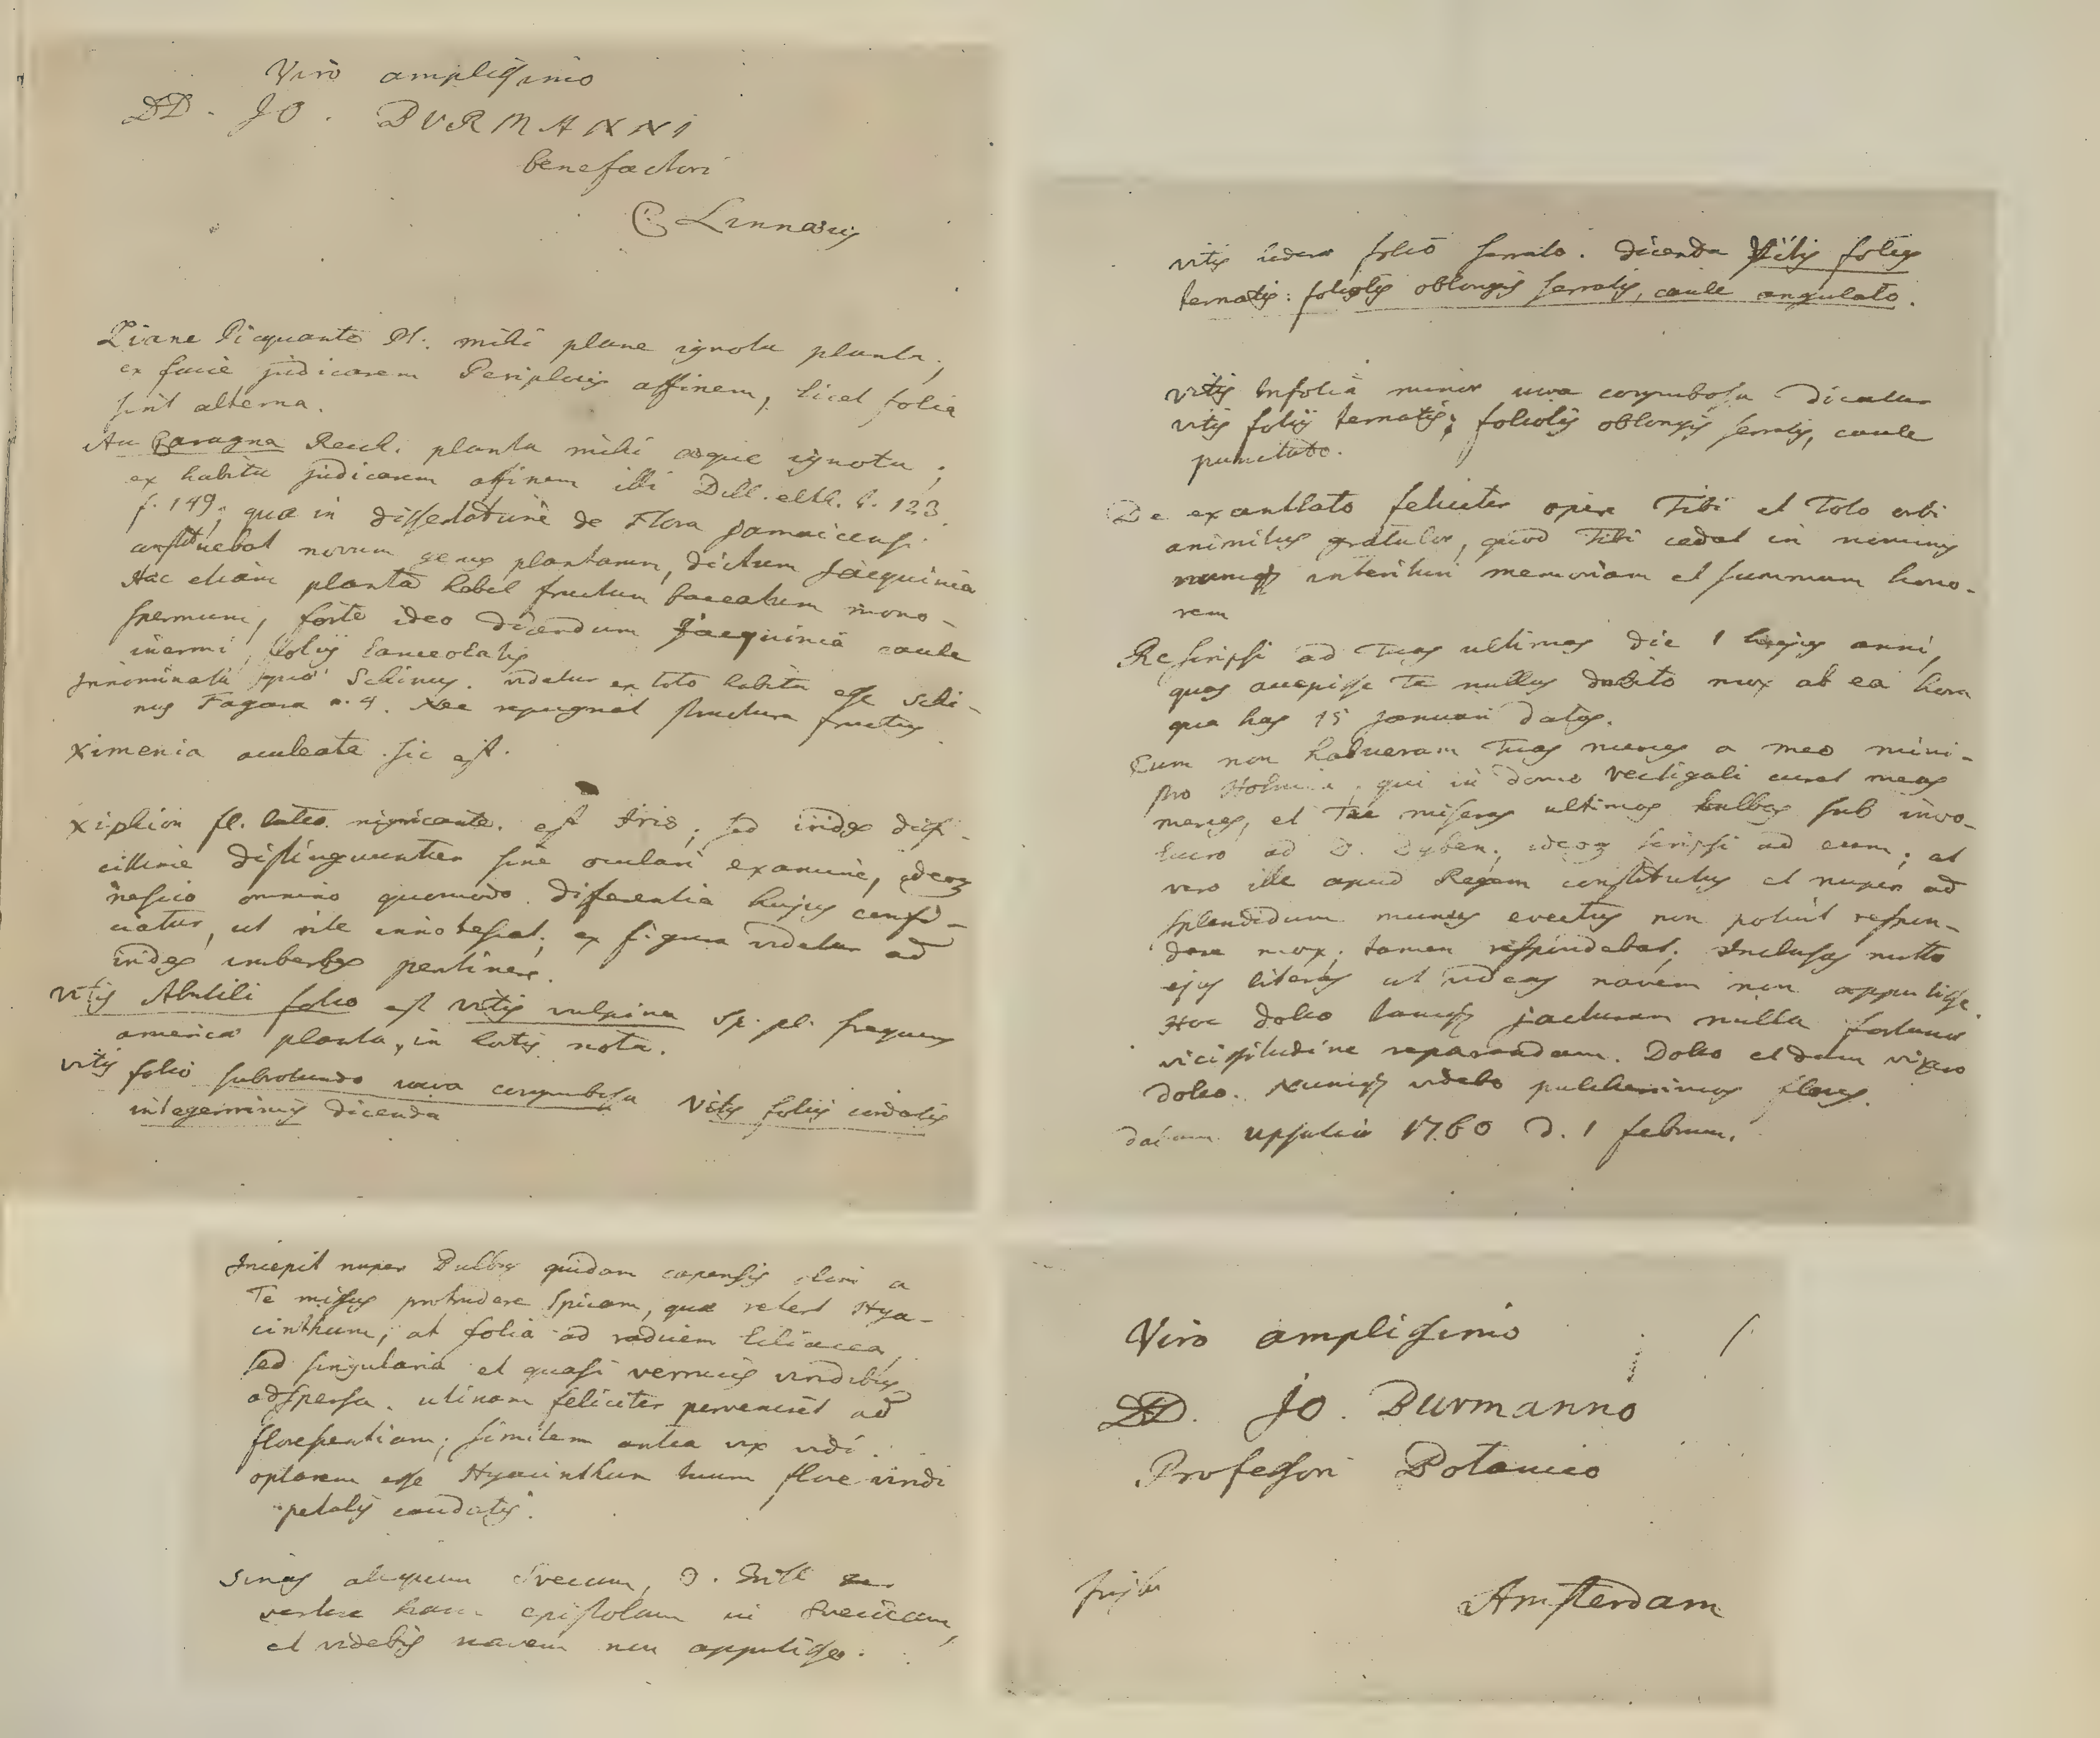 Viro amplissimo
DD. JO. BURMANNI
benefactori
C Linnæus
Liane Picquante Pl. mihi plane ignota planta;
ex facie judicarem Periplocis affinem, licet folia
sint alterna.
planta mihi æque ignota;
ex habitu judicarem affinem illi Dill. elth. t. 123.
f. 149. quæ in dissertatione de Flora Jamaicensi
constituebat novum genus plantarum, dictum Jacquinia
Hæc etiam planta habet fructum baccatum mono-
spermum, forte ideo dicendum Jacquinia caule
inermi, foliis lanceolatis
Innominata pro Schinus. videtur ex toto habitu esse Schi-
nus Fagara n. 4. Nec repugnat structura fructus
Ximenia aculeata sic est.
Xiphion fl. luteo nigricante. est Iris; sed irides dif-
cillime distinguuntur sine oculari examine, adeoq
nescio omnino quomodo differentia hujus confi-
ciatur, ut rite innotescat; ex figura videtur ad
irides imberbes pertinere.
Vitis Abutili folio est vitis vulpina Sp. pl. frequens
america planta, in hortis nota.
vitis folio subrotundo uva corymbosa Vitis foliis cordatis
integerrimis dicenda
vitis hedera folio serrato. dicenda Vitis foliis
ternatis: foliolis oblongis serratis, caule angulato.
vitis trifolia minor uva corymbosa dicatur
vitis foliis ternatis; foliolis oblongis serratis, caule
punctato.
De exantlato feliciter opere Tibi et Toto orbi
animitus gratulor, quod Tibi cedat in nominis
nunq interituri memoriam et summum hono-
rem
Rescripsi ad Tuas ultimas die 1 hujus anni,
quas accepisse Te nullus dubito mox ab ea hora
qua has 15 Januari datas.
Cum non habueram Tuas merces a meo mini-
stro Holmiæ, qui in domo vectigali curat meas
merces, et Tu miseras ultimas bulbos sub invo-
lucro ad D. Dyben, adeoq scripsi ad eum; at
vero ille apud Regem constitutus et nuper ad
splendidum munus evectus non potuit respon-
dere mox; tamen respondebat; Inclusas mitto
ejus literas ut videas navem non appulisse.
Hoc doleo tamq jacturam nulla fortunæ
vicissitudine reparandam. Doleo et dum vixero
doleo. Nunq videbo pulcherrimos flores.
datum Upsaliæ 1760 d. 1 februar.
Incepit nuper Bulbus quidam capensis olim a
Te missus protrudere spicam, quæ refert Hya-
cinthum; at folia ad radicem liliacea,
sed singularia et quasi verrucis viridibus
adspersa. utinam feliciter perveniret ad
florescentiam; similem antea vix vidi.
optarem esse Hyacinthum tuum flore viridi
petalis caudatis.
Sinas aliquem Svecum, D.
vertere hanc epistolam in Svecicam,
et videbis navem non appulisse.
Viro amplissimo
DD. Jo. Burmanno
Professori Botanico
Amsterdam